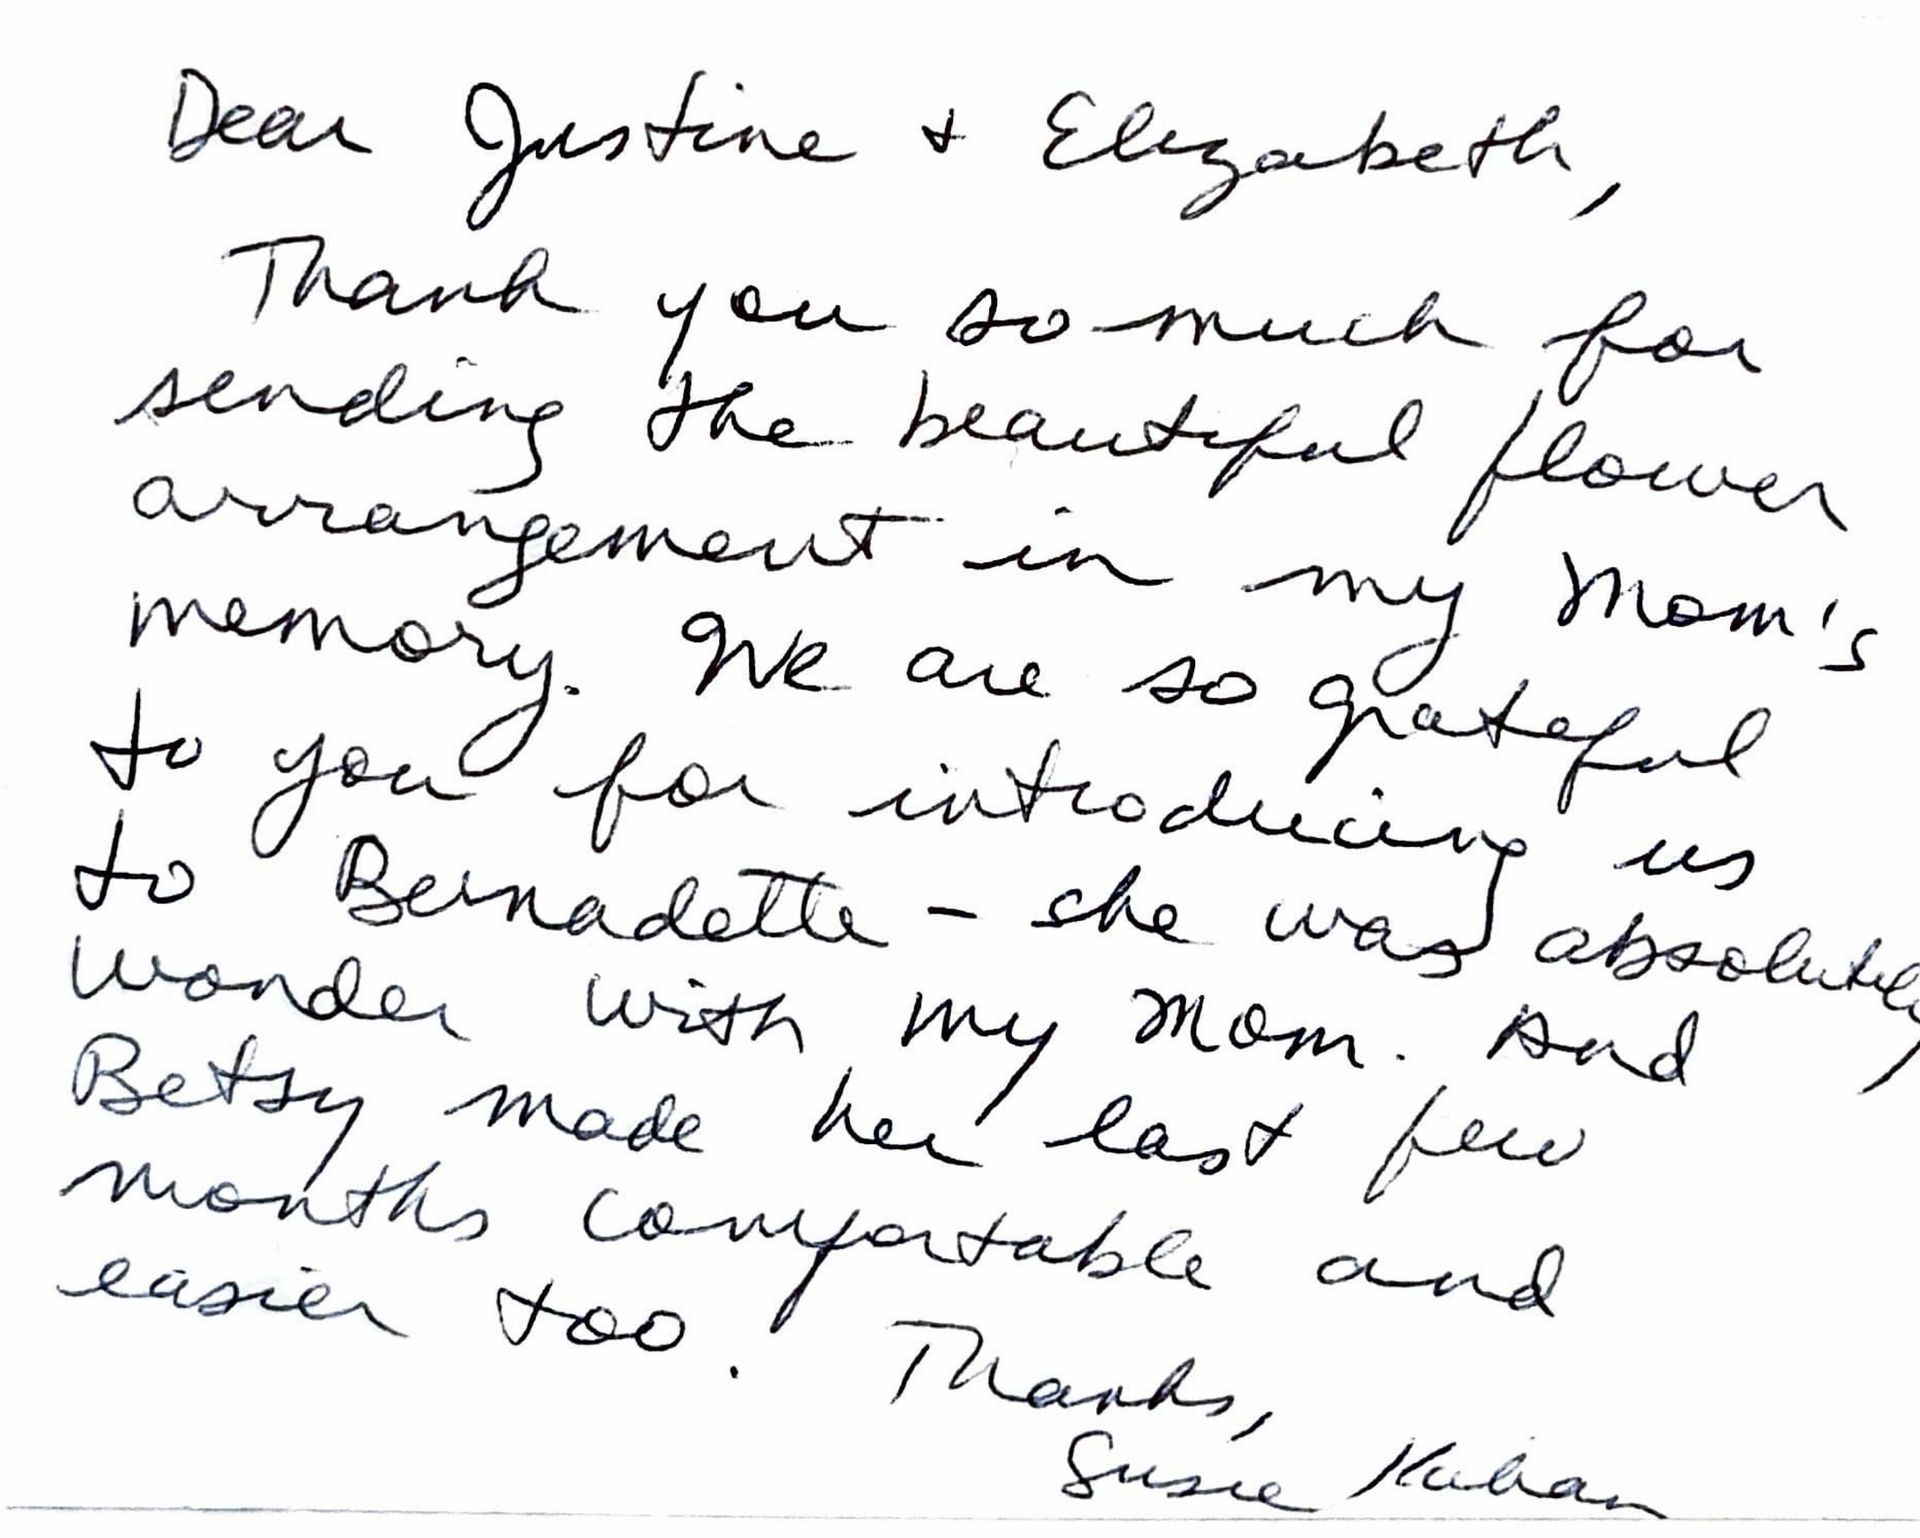 Dear Justine + Elizabeth,
Thank you so much for
sending the beautiful flower
arrangement in my Mom's
memory. We are so grateful
to you for introducing us
to Bernadette – she was absolutely
wonder with my Mom. And
Betsy made her last few
months comfortable and
easier too. Thanks,
Susie